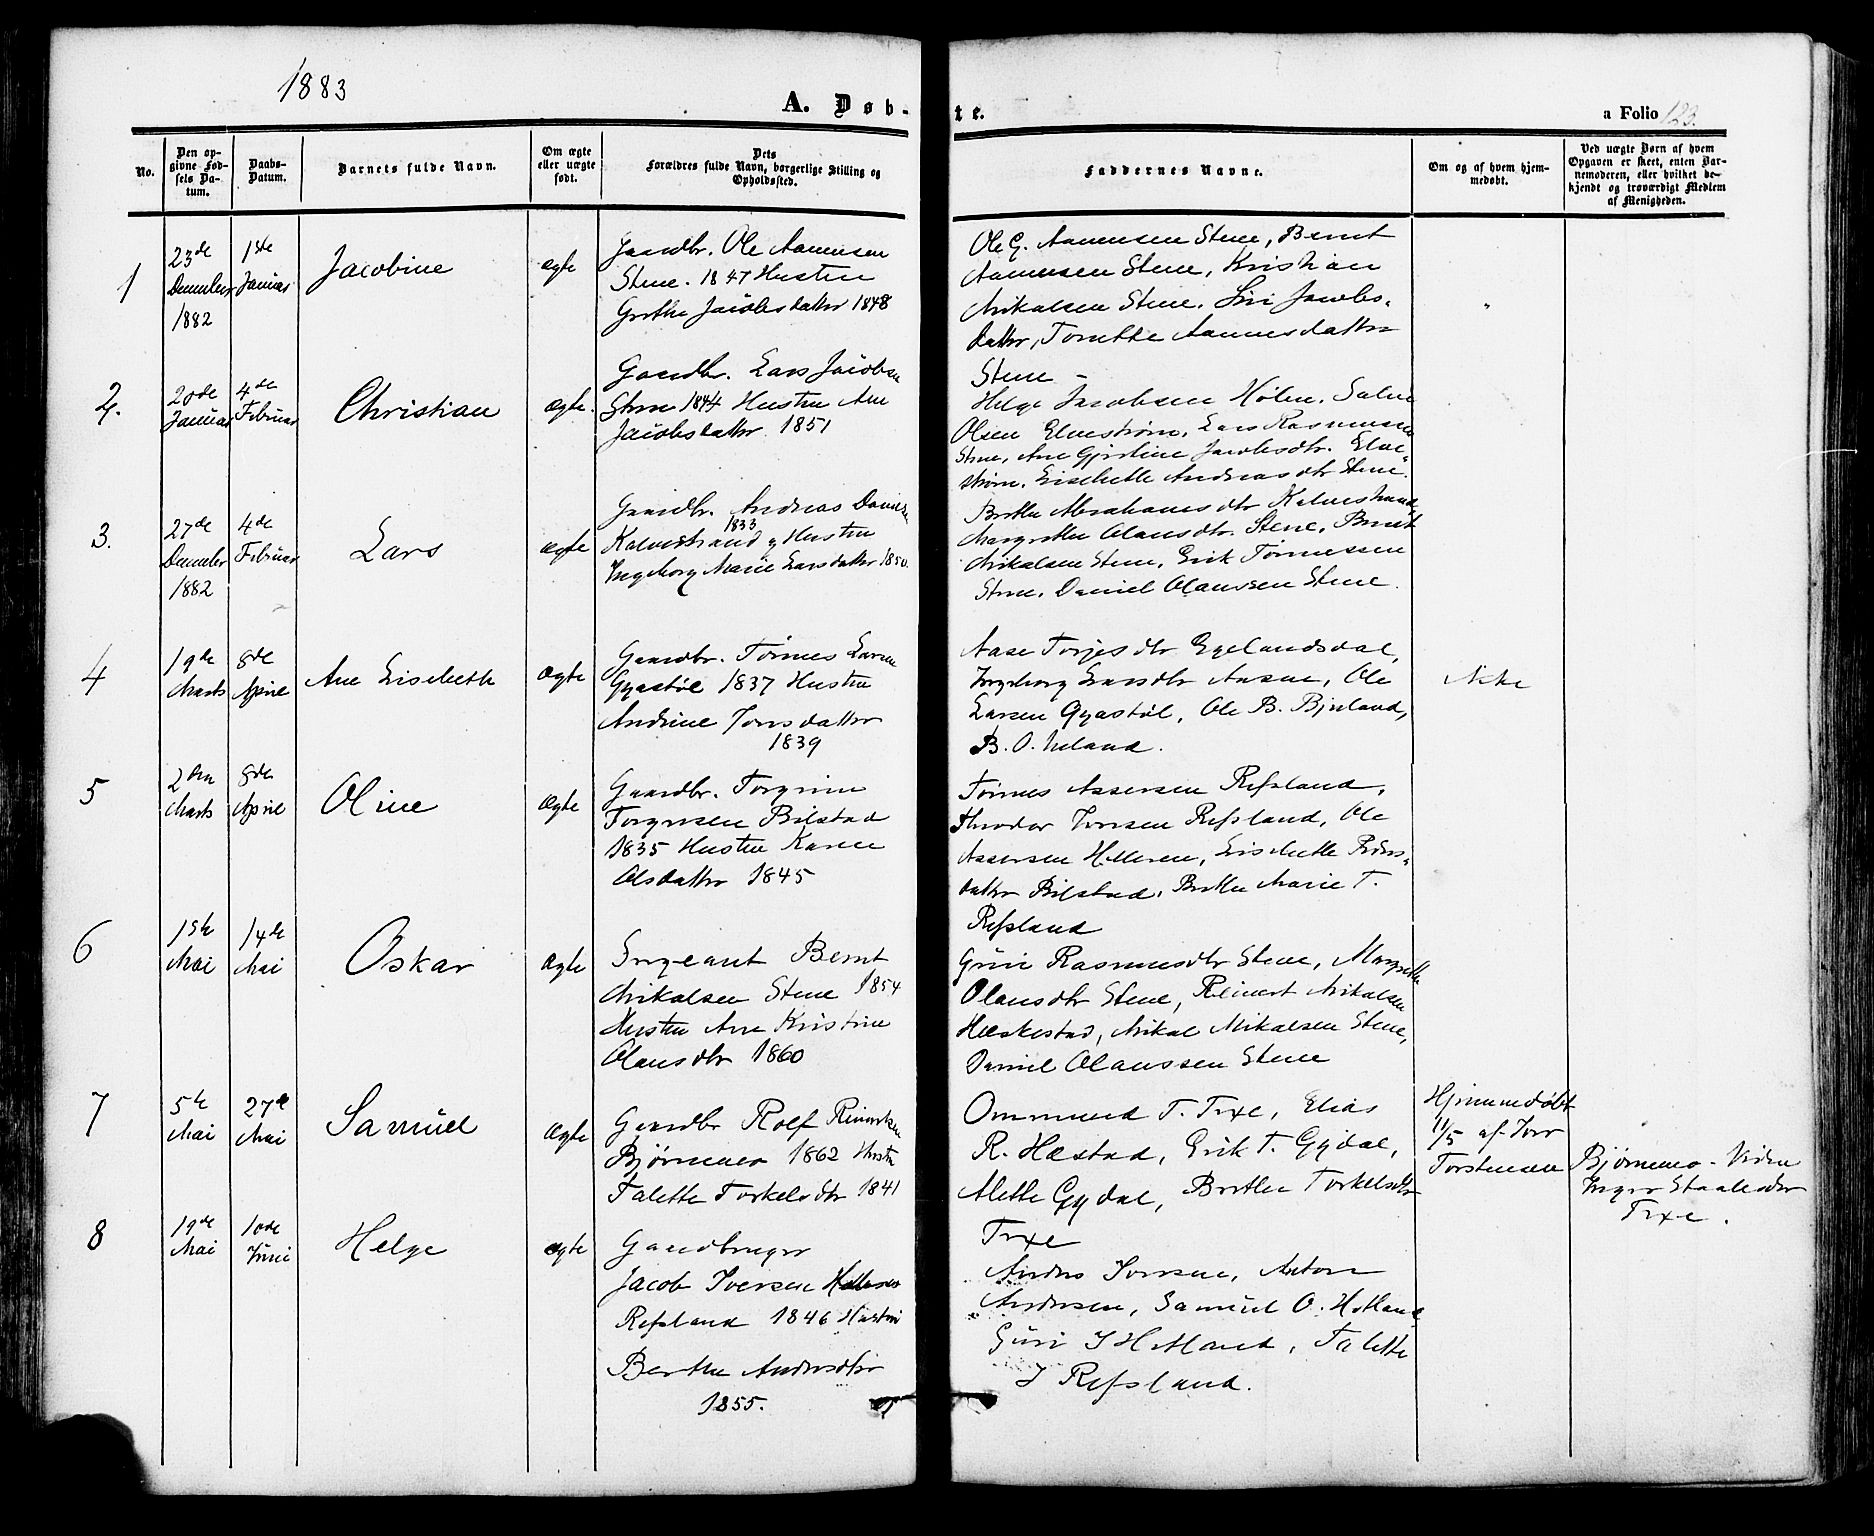 1883
A. Døb-
te.
a Folio 123.
No.
Den op-
givne Fød-
sels Da-
tum.
Daabs-
Datum.
Barnets fulde Navn.
Om ægte
eller uægte
født.
Dets
Forældres fulde Navn, borgerlige Stilling og
Opholdssted.
Faddernes Navne.
Om og af hvem hjem-
medøbt.
Ved uægte Børn af hvem
Opgaven er skeet, enten Bar-
nemoderen, eller hvilket be-
kjendt og troværdigt Medlem
af Menigheden.
1
23de
December
1882
1ste
Januar
Jacobine
ægte
Gaardbr. Ole Aanensen
Stene. 1847 Hustru
Grethe Jacobsdatter 1848
Ole G. Aanensen Stene, Bernt
Aanensen Stene, Kristian
Mikalsen Stene, Siri Jacobs-
datter, Tonette Aanensdatter
Stene
2.
20de
Januar
4de
Februar
Christian
ægte.
Gaardbr. Lars Jacobsen
Stene 1844 Hustru Ane
Jacobsdatter 1851
Helge Jacobsen Hølen, Salve
Olsen Elvestrøm, Lars Rasmussen
Stene, Ane Gjertine Jacobsdtr. Elve-
strøm, Lisebette Andreasdtr Stene.
3.
27de
December
1882
4de
Februar
Lars
ægte
Gaardbr. Andreas Daniels
1833
Kalvestrand og Hustru
Ingeborg Marie Larsdatter 1850.
Berthe Abrahamsdtr Kalvestrand
Margrethe Olausdtr. Stene, Bernt
Mikalsen Stene, Erik Tønnessen
Stene, Daniel Olaussen Stene.
4
19de
Marts
8de
April
Ane Lisebeth
ægte
Gaardbr. Tønnes Larsen
Gyastøl 1837 Hustru
Andrine Jonsdatter
1839
Aase Torjesdtr Egelandsdal,
Ingeborg Larsdtr Aasen, Ole
Larsen Gyastøl, Ole B. Bjuland,
B. O. Ueland.
Ikke
5
2den
Marts
8de
April
Oline
ægte
Gaardbr. Torgrim
Torgersen Bilstad
1835 Hustru Karen
Olsdatter 1845
Tønnes Assersen Refsland,
Theodor Jonsen Refsland, Ole
Assersen Helleren, Lisebette Peders-
datter Bilstad, Berthe Marie T.
Refsland
6
1ste
Mai
14de
Mai
Oskar
ægte
Sergeant Bernt
Mikalsen Stene 1854
Hustru Ane Kristine
Olausdtr 1860
Guri Rasmusdtr Stene, Margrethe
Olausdtr Stene, Reinert Mikalsen
Hæskestad, Mikal Mikalsen Stene,
Daniel Olaussen Stene
7
5te
Mai
27de
Mai
Samuel
ægte
Gaardbr Rolf Reinertsen
Bjørnemo 1862 Hustru
Talette Torkelsdtr 1841
Ommund T. Txe, Elias
R. Hæstad, Erik T. Gydal,
Alette Gydal, Berthe Torkelsdtr
Txe
Hjemmedøbt
11/5 af Jon
Torstensen
Bjørnemo - Viden
Inger Staalesdtr
Txe.
8
19de
Mai
10de
Juni
Helge
ægte
Gaardbruger
Jacob Iversen
Refsland 1846 Hustru
Berthe Andersdtr
1855.
Anders Iversen, Anton
Andersen, Samuel O. Hetland
Guri J Hetland, Talette
J Refsland.